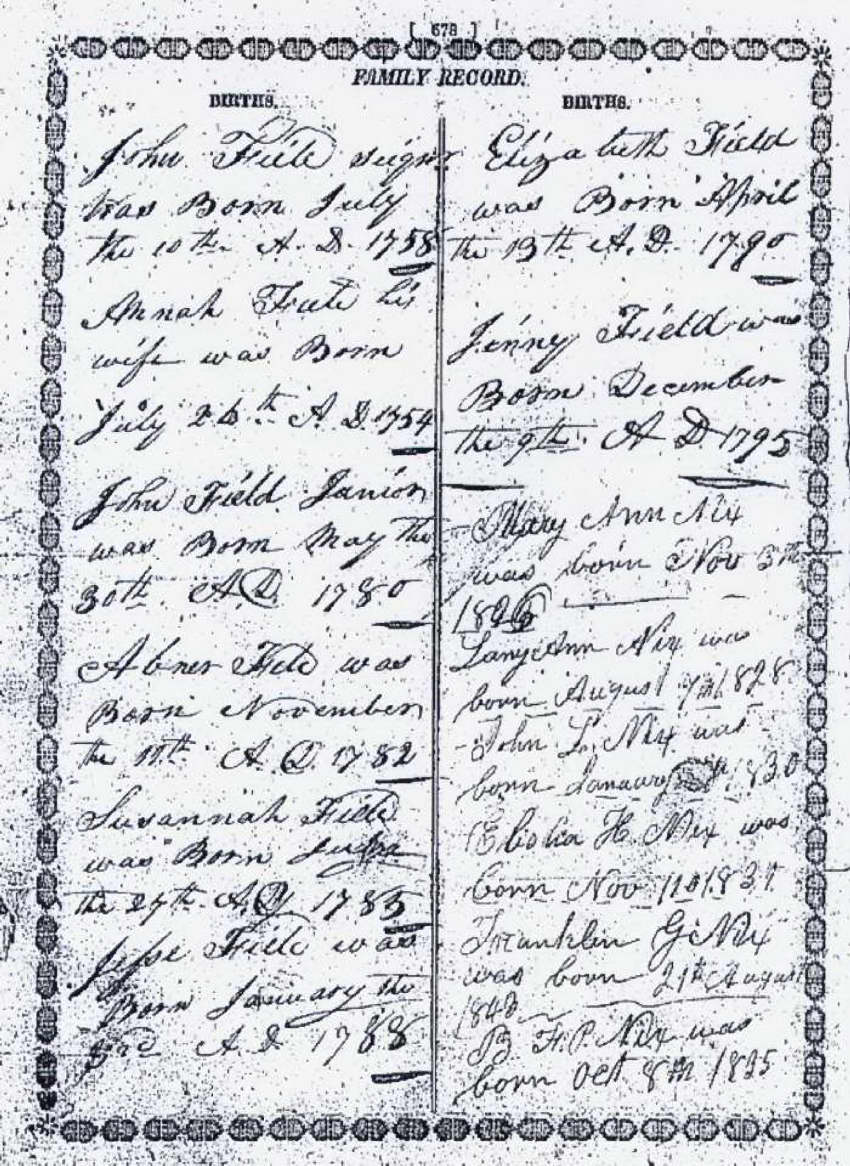 [ 678 ]
FAMILY RECORD.
BIRTHS.
John Field
was Born July
the 10th A. D. 1758
Annah Field his
wife was Born
July 26th A. D. 1754
John Field Junior
was Born May the
30th A D 1780
Abner Field was
Born November
the 11th A. D. 1782
Susannah Field
was Born
the 27th A. D. 1785
Jesse Field was
Born January the
3rd A. D. 1788
BIRTHS.
Elizabeth Field
was Born April
the 13th A. D. 1790
Jenny Field was
Born December
the 9th A D 1795
Mary Ann Nix
was born Nov 3th
1826
Ann Nix was
born August 7th 1828
John L. Nix was
born January 1830
H. Nix was
born Nov 11th 1837
Franklin G Nix
was born 21th August
1843
B F. P. Nix was
born Oct 8th 1835